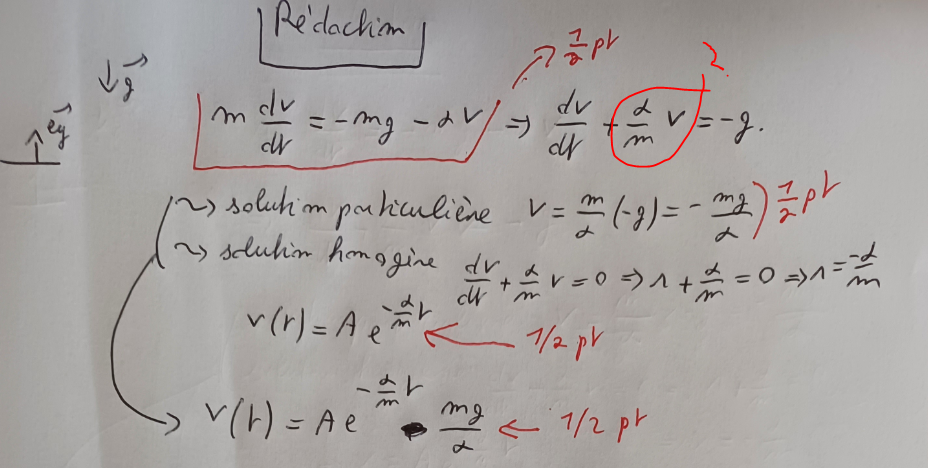 Rédaction
1/2 pt
2
↓ g⃗
e⃗y
m dv/dt = -mg - αv ⇒ dv/dt + α/m v = -g.
~> solution particulière v = m/α (-g) = - mg/α ) 1/2 pt
~> solution homogène dv/dt + α/m v = 0 ⇒ r + α/m = 0 ⇒ r = -α/m
v(t) = A e^(-α/m t) ← 1/2 pt
→ v(t) = A e^(-α/m t) - mg/α ← 1/2 pt